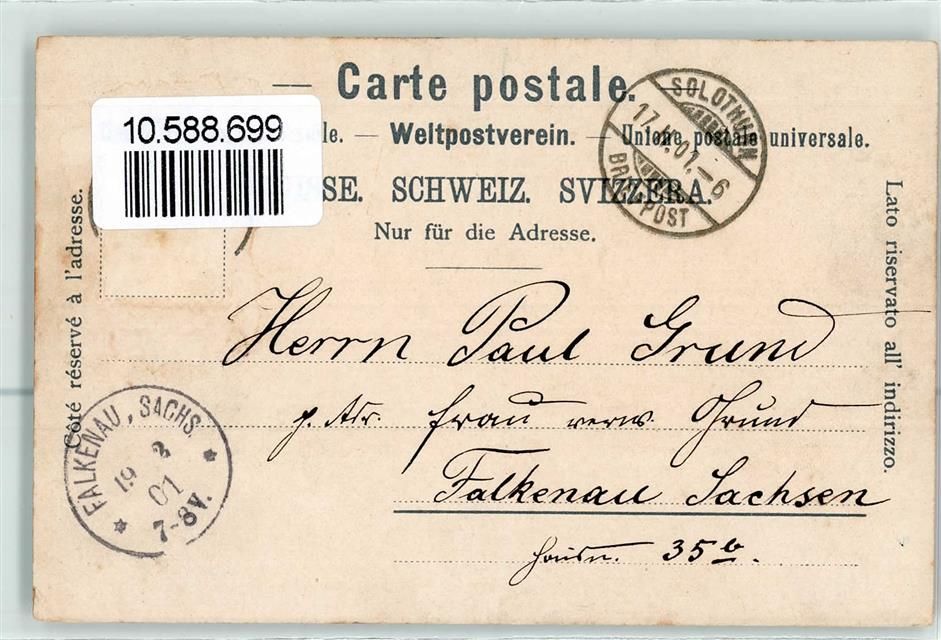 Carte postale.
le. — Weltpostverein. — Unione postale universale.
SSE. SCHWEIZ. SVIZZERA.
Nur für die Adresse.
10.588.699
SOLOTHURN
01.–6
BRF.-POST
Côté réservé à l'adresse.
Lato riservato all' indirizzo.
Herrn Paul Grund
p. Adr. Frau verw. Grund
Falkenau Sachsen
Hausn. 35 b.
FALKENAU, SACHS.
19 2
01
7-8V.